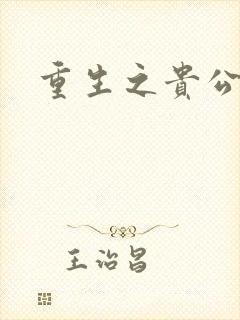 重生之貴公
王治昌